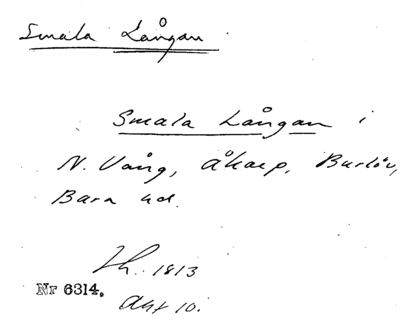 Smala Långan
Smala Långan i
N. Vång, Åkarp, Burlöv,
Bara hd.
Lh. 1813
Nr 6314.
Akt 10.